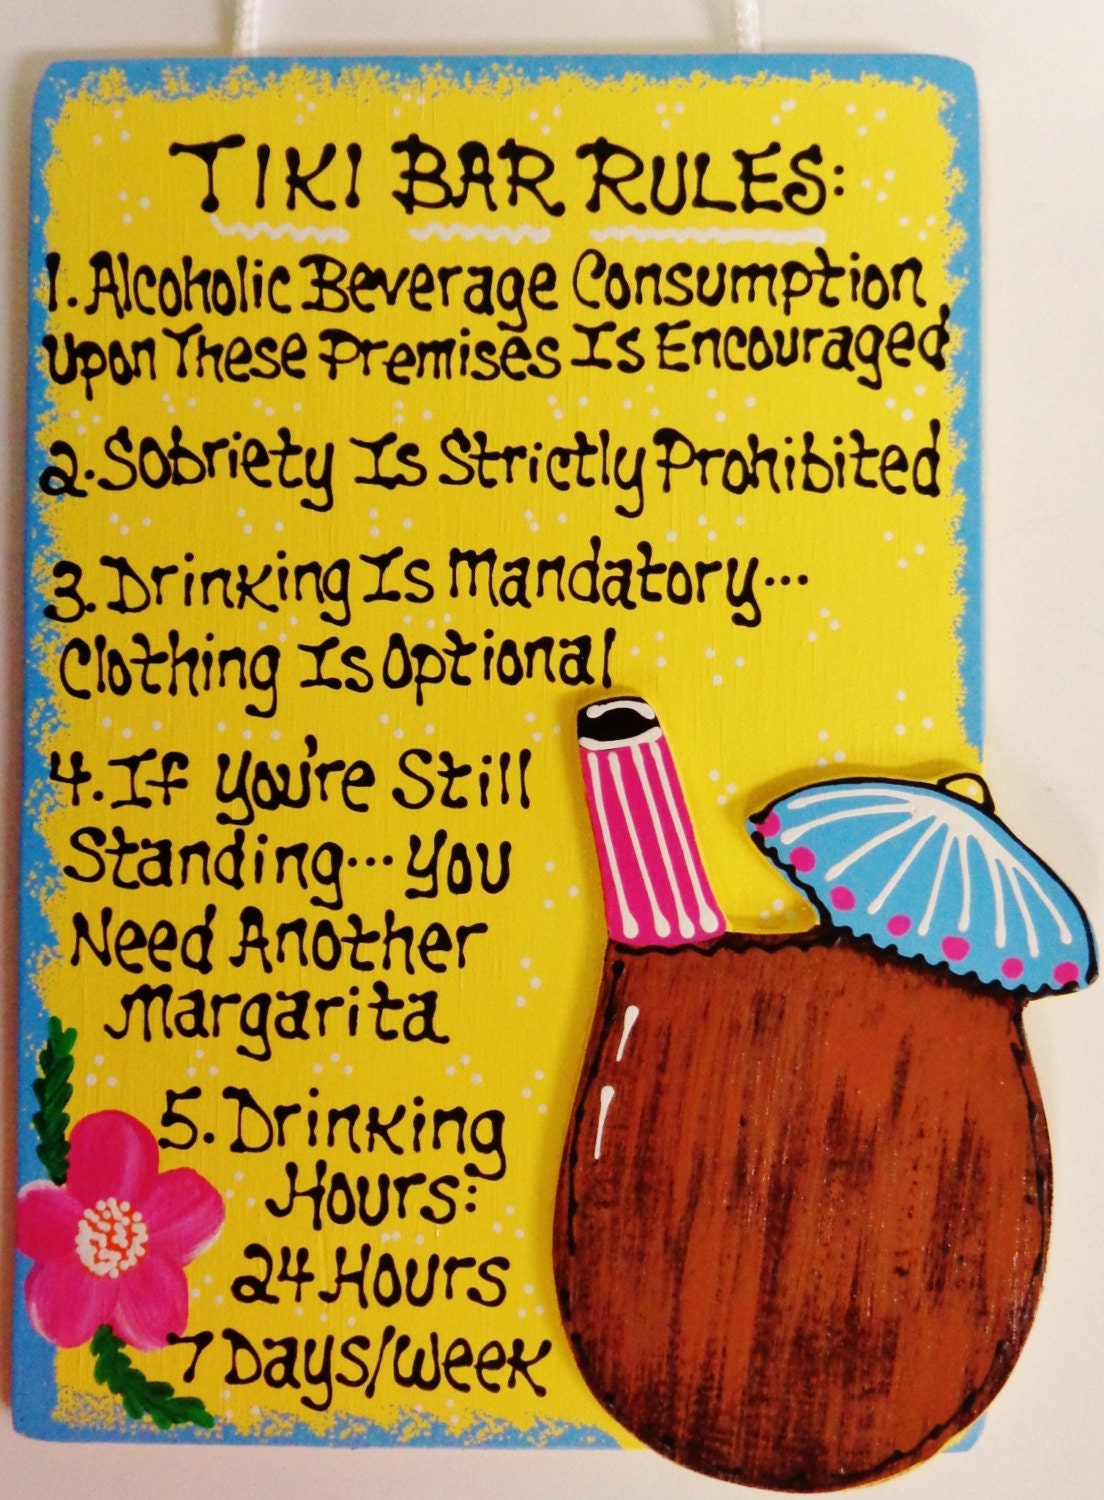 TIKI BAR RULES:
1. Alcoholic Beverage Consumption
Upon These Premises Is Encouraged
2. Sobriety Is Strictly Prohibited
3. Drinking Is Mandatory...
Clothing Is Optional
4. If You're Still
Standing... You
Need Another
Margarita
5. Drinking
Hours:
24 Hours
7 Days/Week